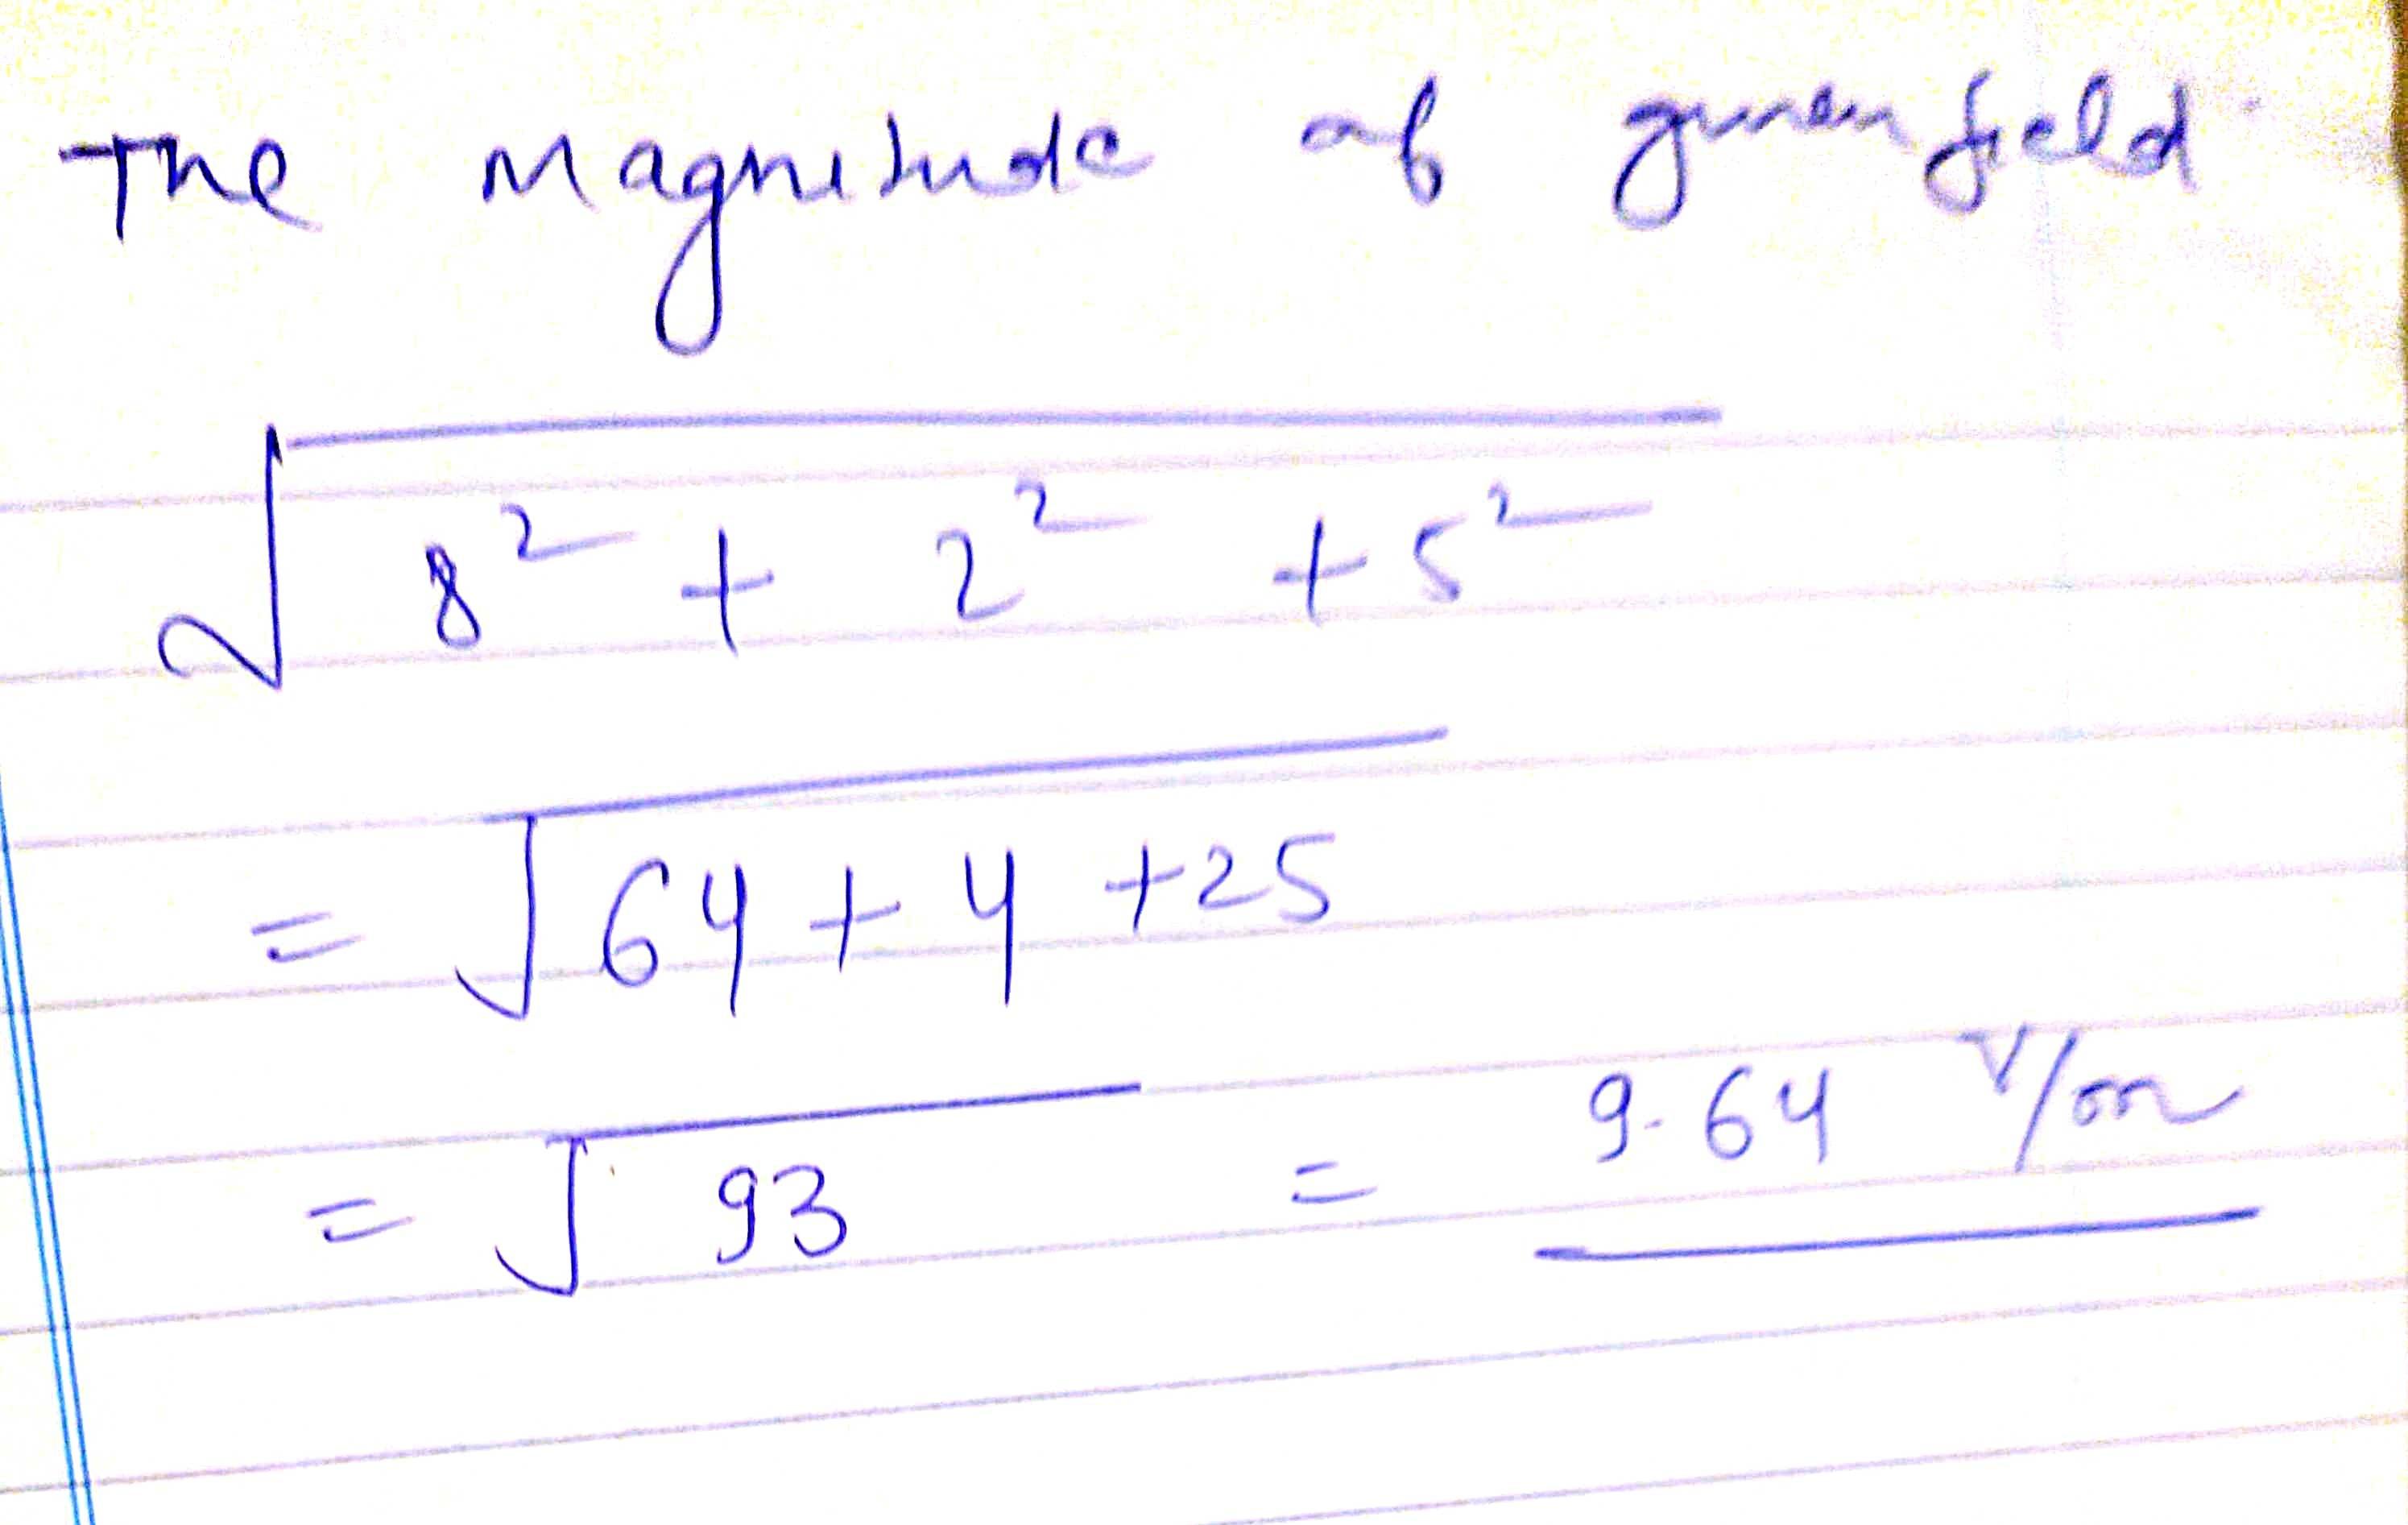 The Magnitude of given field
√8² + 2² + 5²
= √64 + 4 + 25
= √93 = 9.64 V/m